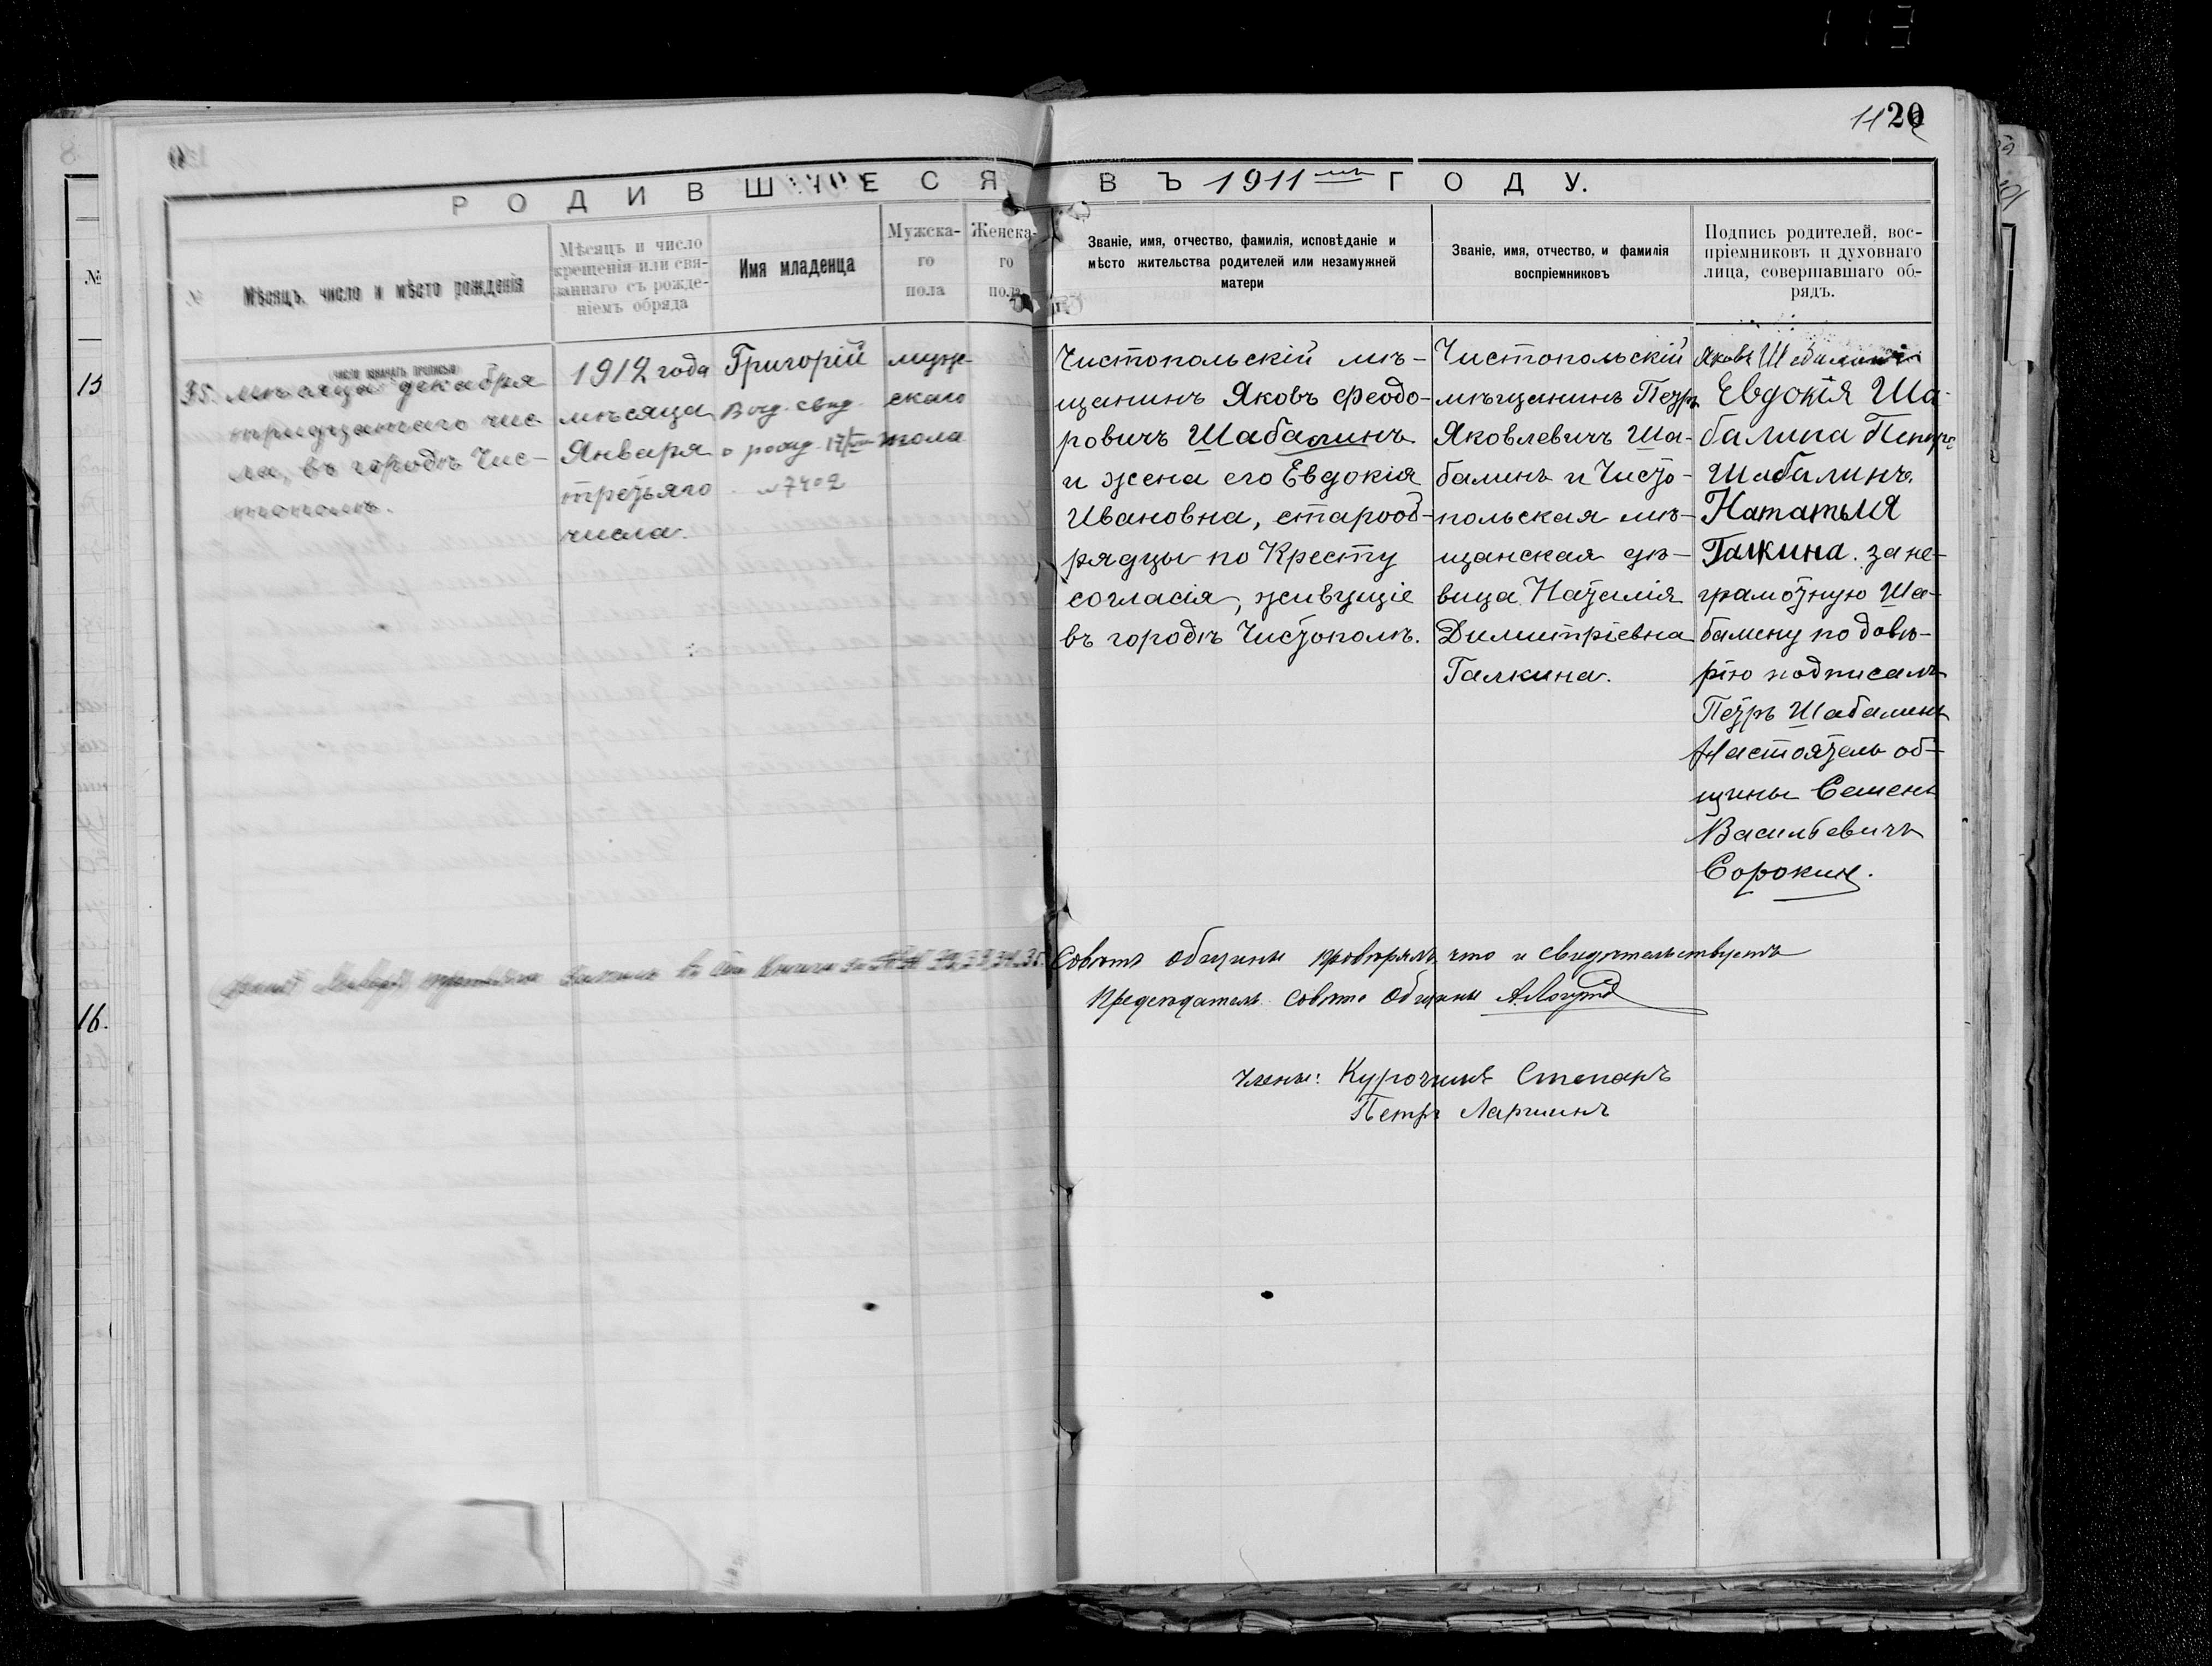 113
1120
РОДИВШІЕСЯ ВЪ 1911 мъ ГОДУ.
№
Мѣсяцъ, число и мѣсто рожденія
Мѣсяцъ и число
крещенія или свя-
заннаго съ рожде-
ніемъ обряда
Имя младенца
Мужска-
го
пола
Женска-
го
пола
Званіе, имя, отчество, фамилія, исповѣданіе и
мѣсто жительства родителей или незамужней
матери
Званіе, имя, отчество, и фамилія
воспріемниковъ
Подпись родителей, вос-
пріемниковъ и духовнаго
лица, совершавшаго об-
рядъ.
№
15
16.
число означать прописью
35. мѣсяца декабря
тридцатаго чис-
ла, въ городѣ Чис-
тополѣ.
1912 года
мѣсяца
Января
третьяго
числа.
Григорій
Выд. свид.
о рожд. 17/VIII
№ 7402
муже-
скаго
пола
Чистопольскій мѣ-
щанинъ Яковъ Феодо-
ровичъ Шабалинъ
и жена его Евдокія
Ивановна, старооб-
рядцы по Кресту
согласія, живущіе
въ городѣ Чистополѣ.
Чистопольскій
мѣщанинъ Петръ
Яковлевичъ Ша-
балинъ и Чисто-
польская мѣ-
щанская дѣ-
вица Наталія
Димитріевна
Галкина.
Яковъ Шабалинъ
Евдокія Ша-
балина Петръ
Шабалинъ.
Наталья
Галкина. за не-
грамотную Ша-
балину по довѣ-
рію подписалъ
Петръ Шабалинъ
Настоятель об-
щины Семенъ
Васильевичъ
Сорокин.
Января книги за №№ 32, 33, 34, 35. Совѣтъ общины провѣрялъ что и свидѣтельствуетъ
Предсѣдатель Совѣта Общины
Члены: Курочкинъ Степанъ
Петръ Ларшинъ